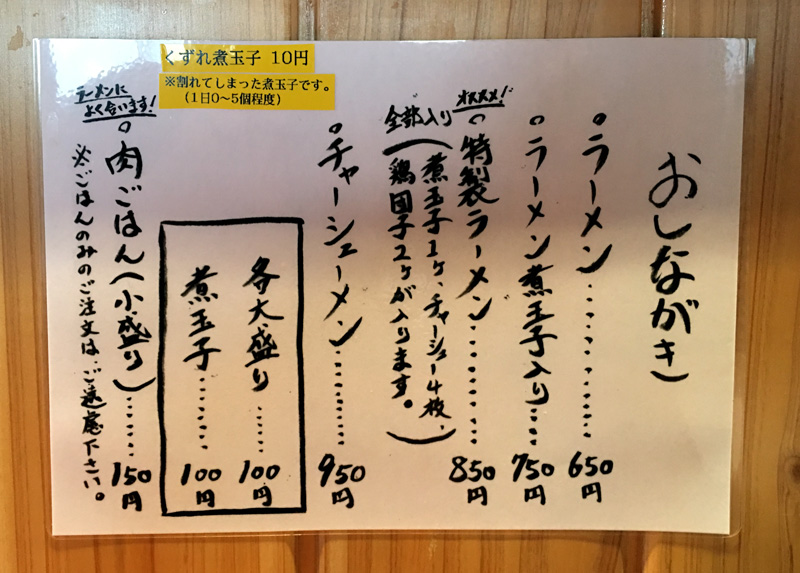 おしながき
。ラーメン.......... 650円
。ラーメン煮玉子入り.... 750円
オススメ!
。特製ラーメン......... 850円
全部入り
(煮玉子1ヶ、チャーシュー4枚、
鶏団子2ヶが入ります。)
。チャーシューメン......... 950円
各大盛り..... 100円
煮玉子....... 100円
ラーメンに
よく合います!
。肉ごはん(小盛り)..... 150円
※ごはんのみのご注文は、ご遠慮下さい。
くずれ煮玉子 10円
※割れてしまった煮玉子です。
(1日0〜5個程度)